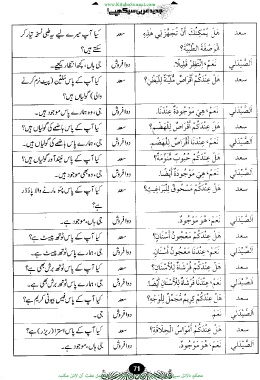 www.KitaboSunnat.com
جدید عربی سیکھیے
سعد هَلْ يُمْكِنُكَ أَنْ تُجَهِّزَ لِي هَذِهِ الْوَصْفَةَ الطِّبِّيَّةَ؟ سعد کیا آپ میرے لیے یہ طبی نسخہ تیار کر سکتے ہیں؟
الصَّيْدَلِي نَعَمْ، اِنْتَظِرْ قَلِيلًا. دوا فروش جی ہاں، کچھ انتظار کیجیے۔
سعد هَلْ عِنْدَكُمْ أَقْرَاصٌ مُلَيِّنَةٌ لِلْبَطْنِ؟ سعد کیا آپ کے پاس (پیٹ نرم کرنے والی) گولیاں ہیں؟
الصَّيْدَلِي نَعَمْ، هِيَ مَوْجُودَةٌ عِنْدَنَا. دوا فروش جی، وہ ہمارے پاس موجود ہیں۔
سعد هَلْ عِنْدَكُمْ أَقْرَاصٌ لِلْهَضْمِ؟ سعد کیا آپ کے پاس ہاضمے کی گولیاں ہیں؟
الصَّيْدَلِي نَعَمْ، عِنْدَنَا أَقْرَاصٌ لِلْهَضْمِ. دوا فروش جی، ہمارے پاس ہاضمے کی گولیاں ہیں۔
سعد هَلْ عِنْدَكُمْ حُبُوبٌ مُنَوِّمَةٌ؟ سعد کیا آپ کے پاس نیند آور گولیاں ہیں؟
الصَّيْدَلِي نَعَمْ، هِيَ مَوْجُودَةٌ أَيْضًا. دوا فروش جی، وہ بھی موجود ہیں۔
سعد هَلْ عِنْدَكُمْ مَسْحُوقٌ لِلْبَرَاغِيثِ؟ سعد کیا آپ کے پاس پسو مارنے والا پاؤڈر ہے؟
الصَّيْدَلِي نَعَمْ، هُوَ مَوْجُودٌ. دوا فروش جی ہاں، موجود ہے۔
سعد هَلْ عِنْدَكُمْ مَعْجُونُ أَسْنَانٍ؟ سعد کیا آپ کے پاس ٹوتھ پیسٹ ہے؟
الصَّيْدَلِي نَعَمْ، عِنْدَنَا مَعْجُونُ أَسْنَانٍ. دوا فروش جی، ہمارے پاس ٹوتھ پیسٹ ہے۔
سعد هَلْ عِنْدَكُمْ فُرْشَاةٌ لِلْأَسْنَانِ؟ سعد کیا آپ کے پاس ٹوتھ برش بھی ہے؟
الصَّيْدَلِي نَعَمْ، عِنْدَنَا فُرْشَاةٌ لِلْأَسْنَانِ أَيْضًا. دوا فروش جی، ہمارے پاس ٹوتھ برش بھی ہے۔
سعد هَلْ عِنْدَكُمْ كَرِيمٌ مُجَمِّلٌ لِلْوَجْهِ؟ سعد کیا آپ کے پاس بیوٹی کریم ہے؟
الصَّيْدَلِي نَعَمْ. دوا فروش جی۔
سعد هَلْ عِنْدَكُمْ أَمْوَاسُ الْحِلَاقَةِ؟ سعد کیا آپ کے پاس استرا (ریزر) ہے؟
الصَّيْدَلِي نَعَمْ، هُوَ مَوْجُودٌ. دوا فروش جی ہاں، موجود ہے۔
71